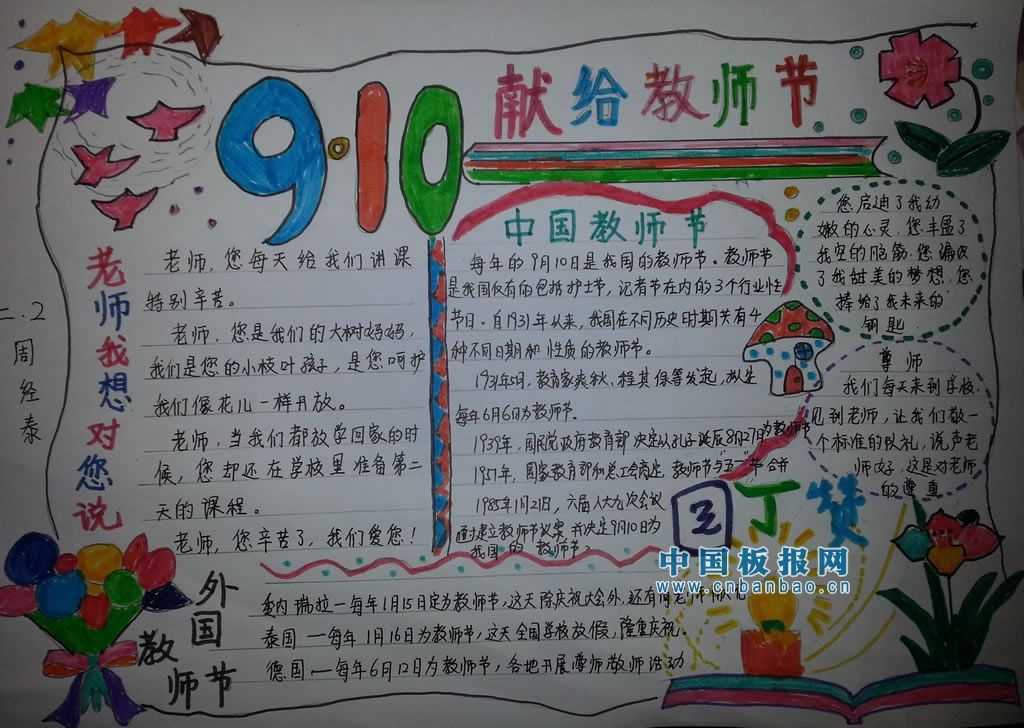 9·10
献给教师节
二.2
周经泰
老师我想对您说
老师,您每天给我们讲课
特别辛苦。
老师,您是我们的大树妈妈,
我们是您的小枝叶孩子,是您呵护
我们像花儿一样开放。
老师,当我们都放学回家的时
候,您却还在学校里准备第二
天的课程。
老师,您辛苦了,我们爱您!
中国教师节
每年的9月10日是我国的教师节。教师节
是我国仅有的包括护士节,记者节在内的3个行业性
节日。自1931年以来,我国在不同历史时期共有4
种不同日期和性质的教师节。
1931年5月,教育家爽秋、程其保等发起,拟定
每年6月6日为教师节。
1939年,国民党政府教育部决定以孔子诞辰8月27日为教师节
1951年,国家教育部和总工会商定,教师节与"五一"节合并
1985年1月21日,六届人大九次会议
通过建立教师节议案,并决定9月10日为
我国的教师节。
您启迪了我幼
嫩的心灵,您丰盈了
我空的脑筋,您
了我甜美的梦想,您
捧给了我未来的
钥匙
尊师
我们每天来到学校
见到老师,让我们敬一
个标准的队礼,说声老
师好,这是对老师
的尊重
园丁赞
中国板报网
www.cnbanbao.cn
外国教师节
委内瑞拉—每年1月15日定为教师节,这天除庆祝大会外,还有
泰国—每年1月16日为教师节,这天全国学校放假,隆重庆祝.
德国—每年6月12日为教师节,各地开展尊师教师活动